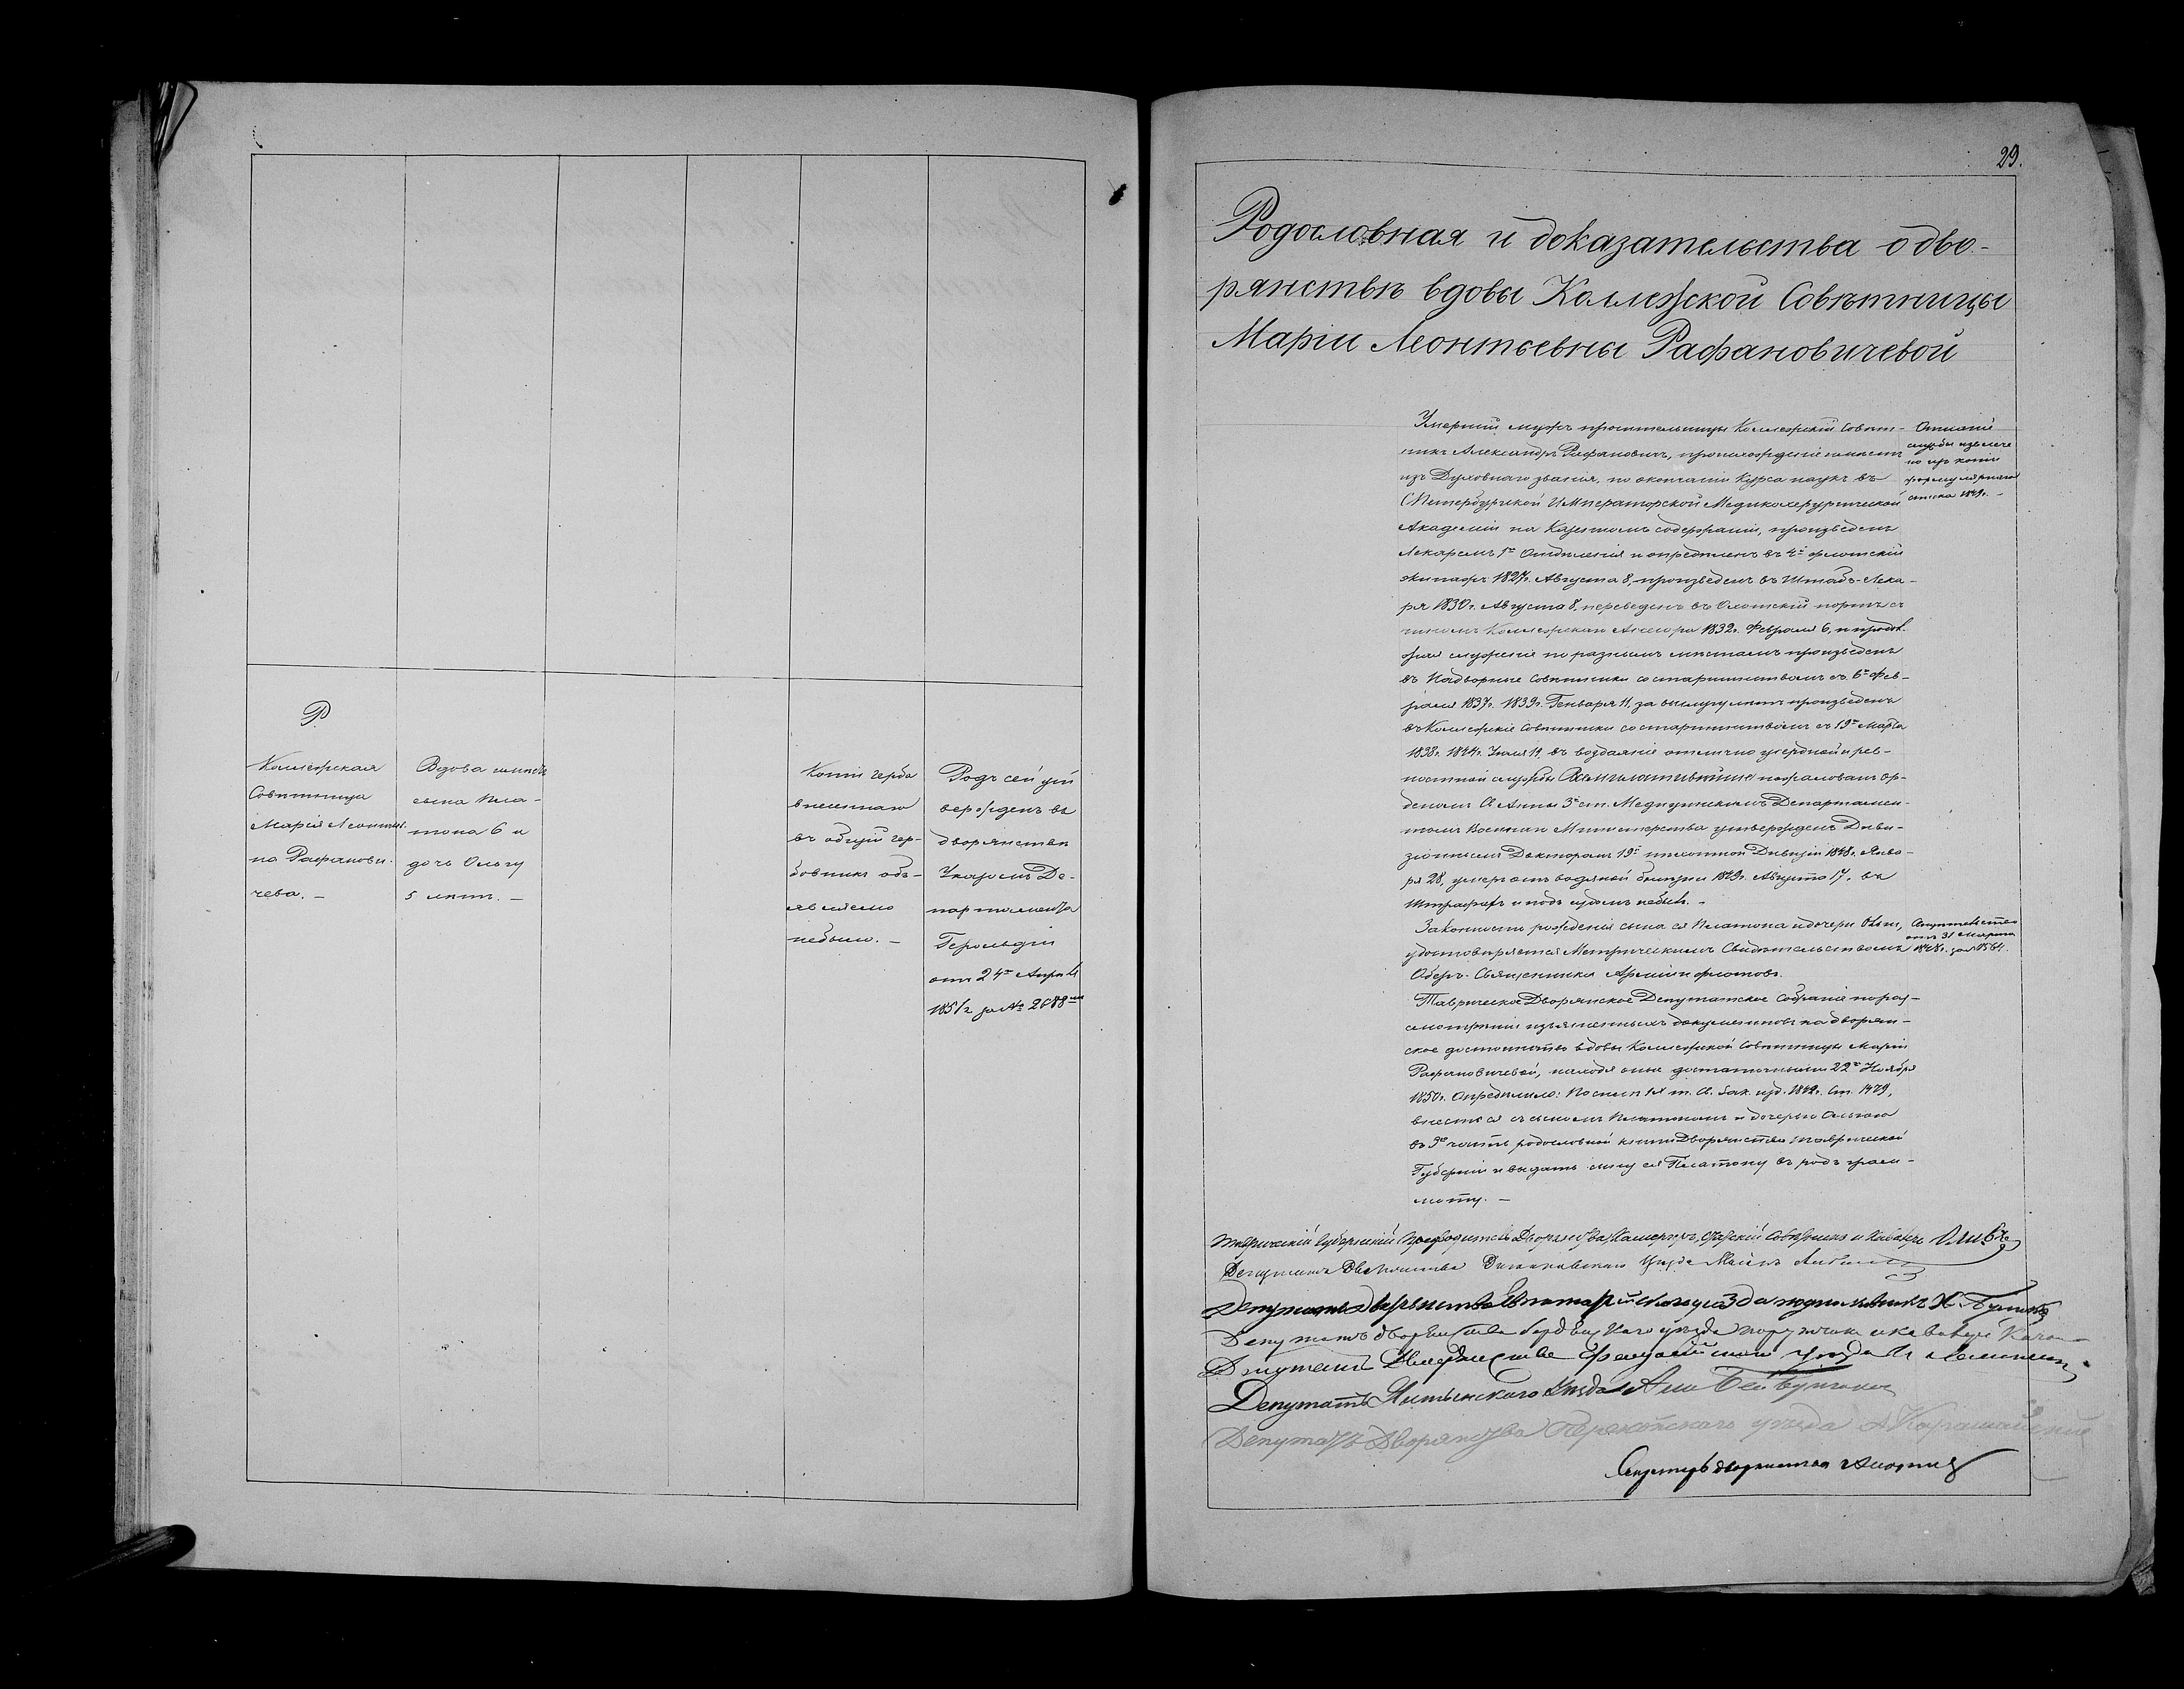 Р
Коллежская
Совѣтница
Марія Леонтьев.
на Рафанови-
чева. —
Вдова имѣетъ
сына Пла-
тона 6 и
дочь Ольгу
5 лѣтъ. —
Копіи герба
внесеннаго
въ общій гер-
бовникъ объ-
являемо
небыло. —
Родъ сей ут
вержденъ въ
дворянствѣ
Указомъ Де-
партамента
Герольдіи
отъ 24го Апрѣля
1851 г за №
29.
Родословная и доказательства о дво-
рянствѣ вдовы Коллежской Совѣтницы
Маріи Леонтьевны Рафановичевой
Умершій мужъ просительницы Коллежскій Совѣт-
никъ Александръ Рафановичъ, происхожденіе имѣетъ
изъ Духовнаго званія, по окончаніи курса наукъ въ
СПетербургской ИМператорской Медикохерургической
Академіи на Казенномъ содержаніи, произведенъ
Лекаремъ 1го Отдѣленія и опредѣленъ въ 4й флотскій
экипажъ 1827г. Августа 8, произведенъ въ Штабъ-Лека-
ря 1830г. Августа 8, переведенъ въ Охотскій портъ съ
чиномъ Коллежскаго Асесора 1832г. Февраля 6, и продол.
жая служеніе по разнымъ мѣстамъ произведенъ
въ Надворные Совѣтники со старшинствомъ съ 6го Фев-
раля 1837г. 1839г. Генваря 11, за выслугу лѣтъ произведенъ
въ Коллежскіе Совѣтники со старшинствомъ съ 19го Марта
1838г. 1844г. 19, въ воздаяніе отлично усердной и рев-
ностной службы Всемилостивѣйше пожалованъ ор-
деномъ Св. Анны 3й ст. Медицинскимъ Департамен-
томъ Военнаго Министерства утвержденъ Диви-
зіоннымъ Докторомъ 19й пѣхотной Дивизіи 1848г. Янва-
ря 28, умеръ отъ водяной болѣзни 1849г. Августа 17, въ
Штрафахъ и подъ судомъ небылъ. —
Описаніе
службы извлече
но изъ копіи
формулярнаго
списка 1849г. —
Законность рожденія сына ея Платона и дочери Ольги,
удостовѣряется Метрическимъ Свидѣтельствомъ
Оберъ-Священника Арміи и флотовъ.
отъ 31 Марта
1848г. за №
Таврическое Дворянское Депутатское Собраніе по раз-
смотрѣніи изъясненныхъ документовъ на дворян-
ское достоинство вдовы Коллежской Совѣтницы Маріи
Рафановичевой, находя оные достаточными 22го Ноября
1850г. Опредѣлило: т. Св. Зак. изд. 1842г. Ст.
внесть ея съ сыномъ Платономъ и дочерью Ольгою
въ 3ю часть родословной книги Дворянства Таврической
Губерніи и выдать сыну ея Платону въ родъ грам-
моту. —
Таврическій Губернскій Предводитель Дворянства, Камергеръ, Статскій Совѣтникъ и Кавалеръ
Депутатъ Дворянства Уѣзда
Депутатъ дворянства Евпаторійскаго уѣзда подполковникъ
Депутатъ дворянства Бердянскаго уѣзда поручикъ и кавалеръ
Депутатъ Дворянства Феодосійскаго уѣзда
Депутатъ Ялтинскаго Уѣзда
Депутатъ Дворянства Перекопскаго уѣзда
Секретарь дворянства